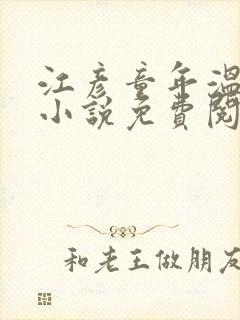 江彦童年温
小说免費閱
和老王做朋友